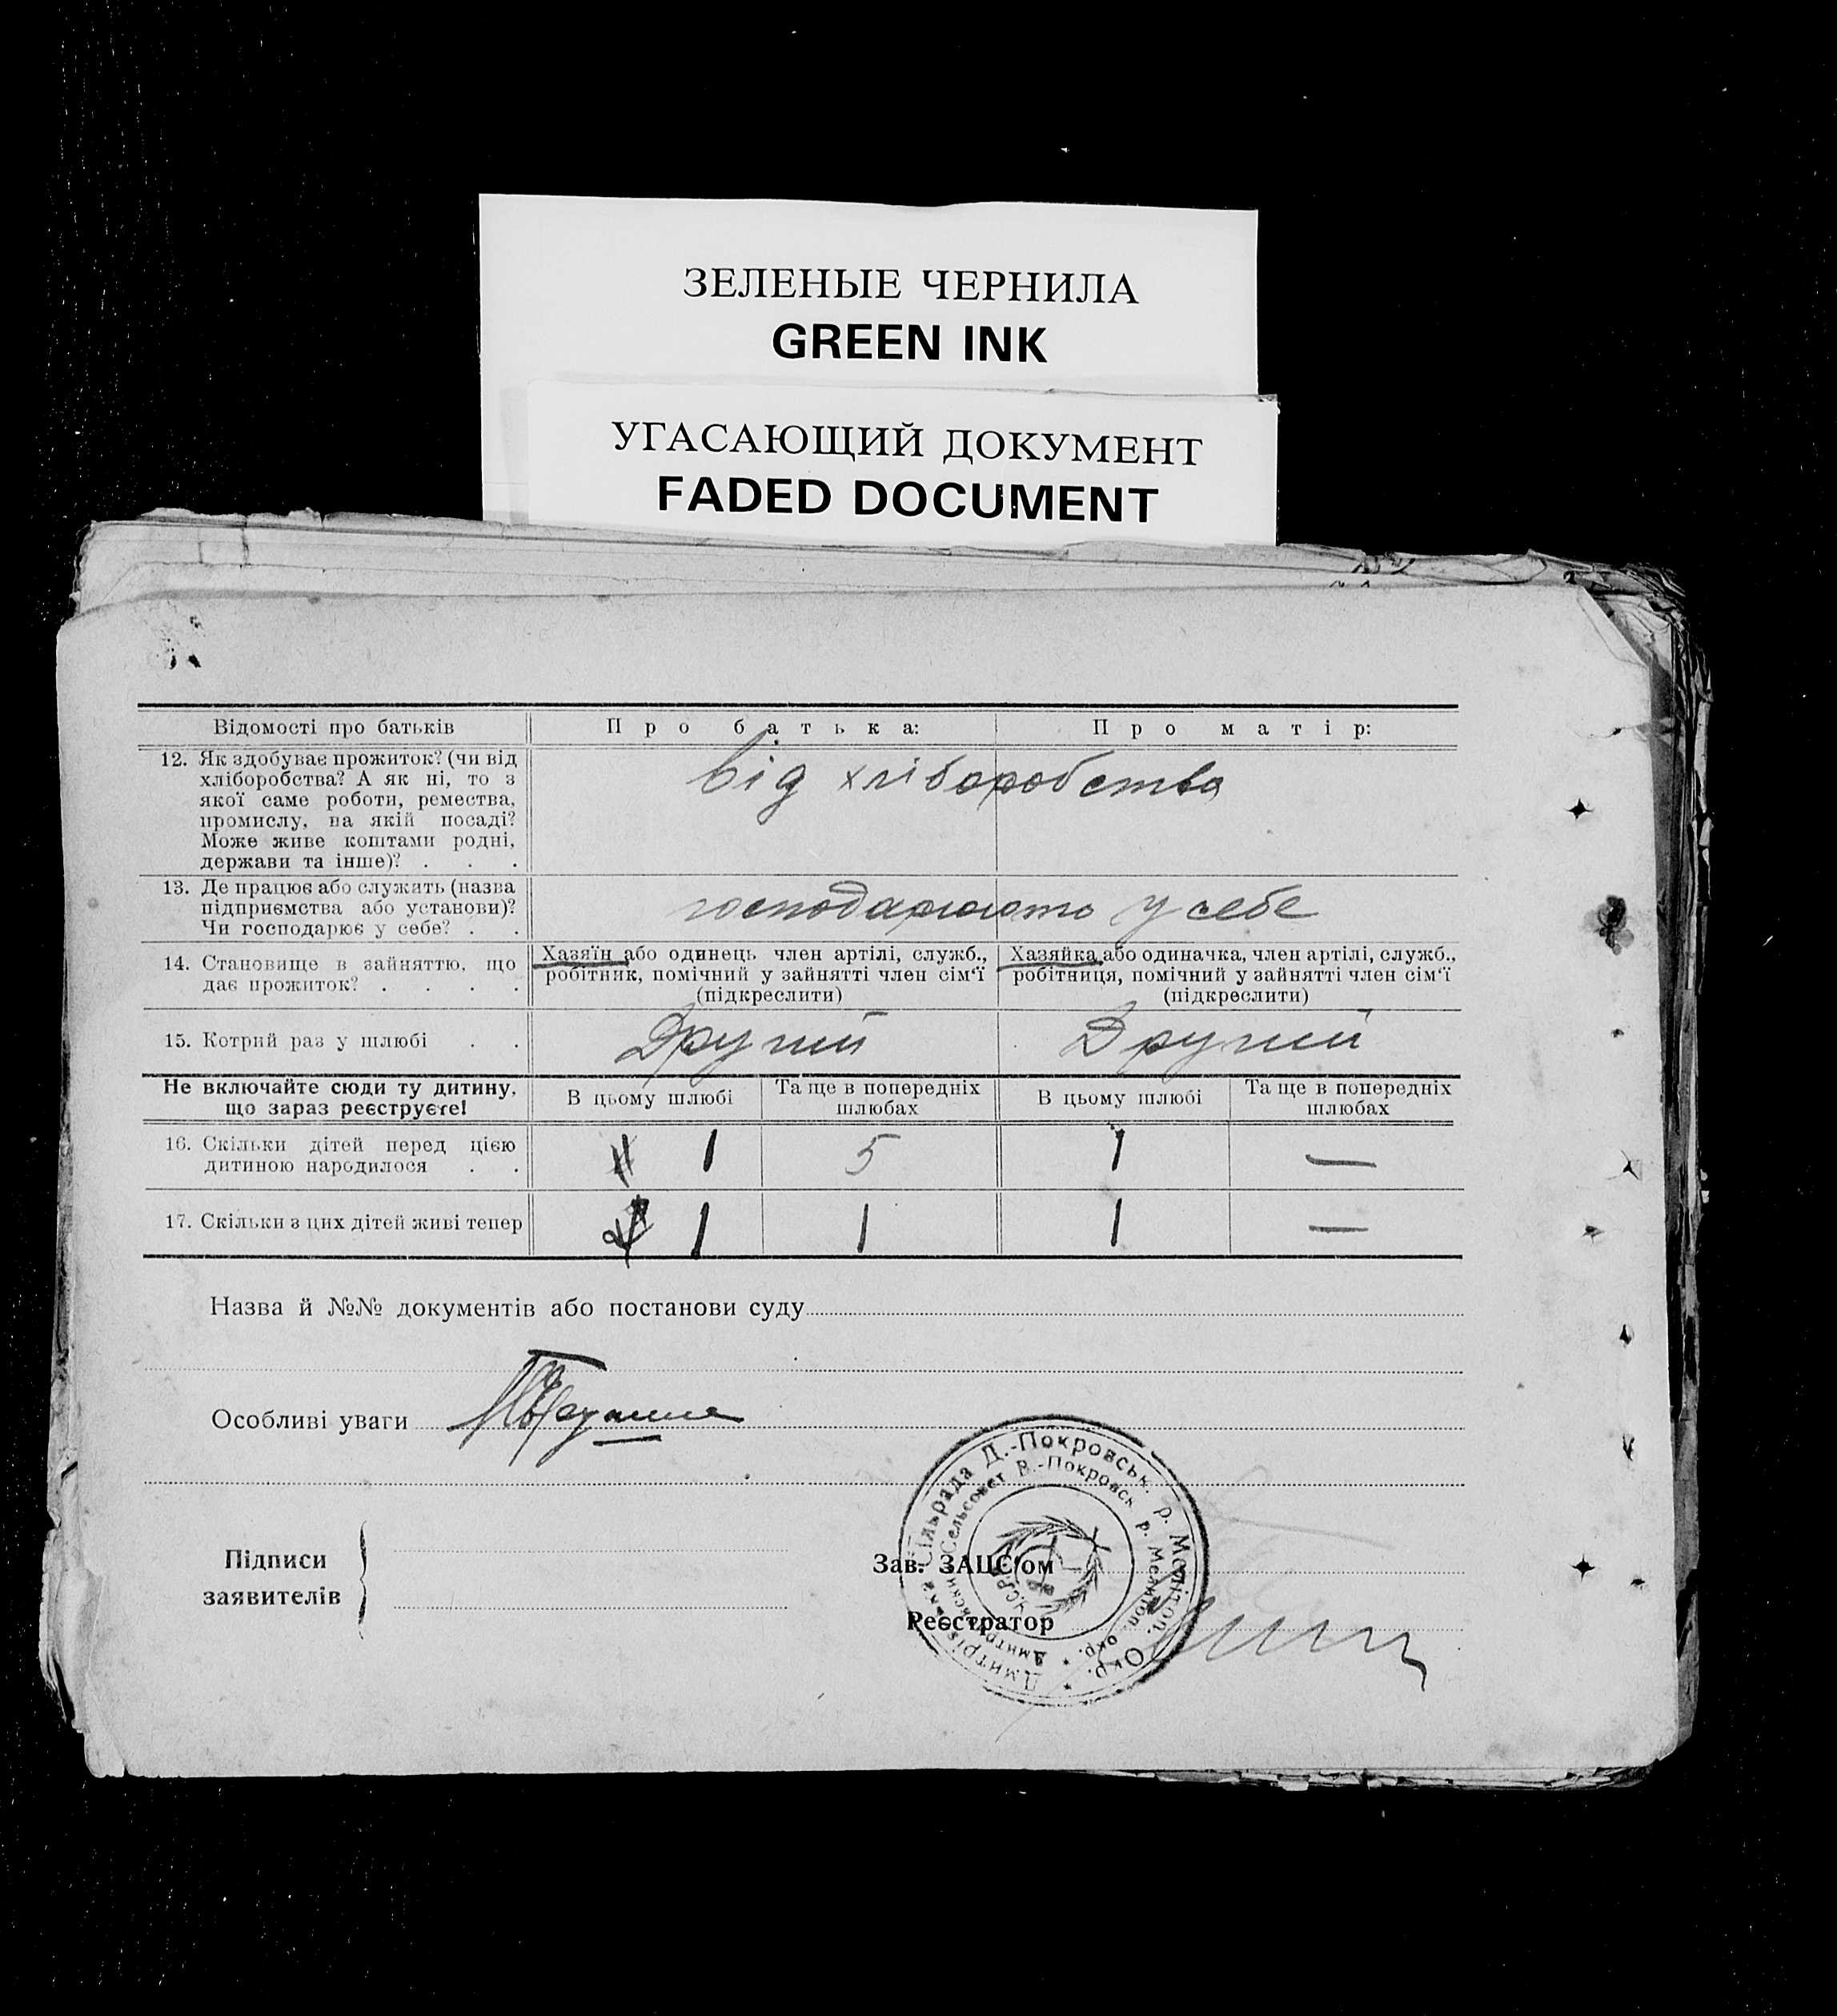 ЗЕЛЕНЫЕ ЧЕРНИЛА
GREEN INK
УГАСАЮЩИЙ ДОКУМЕНТ
FADED DOCUMENT
Відомості про батьків Про батька: Про матір:
12. Як здобуває прожиток? (чи від
хліборобства? А як ні, то з
якої саме роботи, ремества,
промислу, на якій посаді?
Може живе коштами родні,
держави та інше)? . . .
від хліборобства
13. Де працює або служить (назва
підприємства або установи)?
Чи господарює у себе? . .
господарюють у себе
14. Становище в зайняттю, що
дає прожиток? . . . .
Хазяїн або одинець член артілі, служб.,
робітник, помічний у зайнятті член сім'ї
(підкреслити)
Хазяйка або одиначка, член артілі, служб.,
робітниця, помічний у зайнятті член сім'ї
(підкреслити)
15. Котрий раз у шлюбі . . Другий Другий
Не включайте сюди ту дитину,
що зараз реєструєте!
В цьому шлюбі
Та ще в попередніх
шлюбах
В цьому шлюбі
Та ще в попередніх
шлюбах
16. Скільки дітей перед цією
дитиною народилося . .
1 5 1 —
17. Скільки з цих дітей живі тепер 1 1 1 —
Назва й №№ документів або постанови суду
Особливі уваги
Підписи
заявителів
Зав. ЗАЦС'ом
Реєстратор
Дмитрівська Сільрада Д.-Покровськ. р. Мелітоп. Окр.
Дмитриевский Сельсовет В.-Покровск. р. Мелитоп. окр.
УСРР